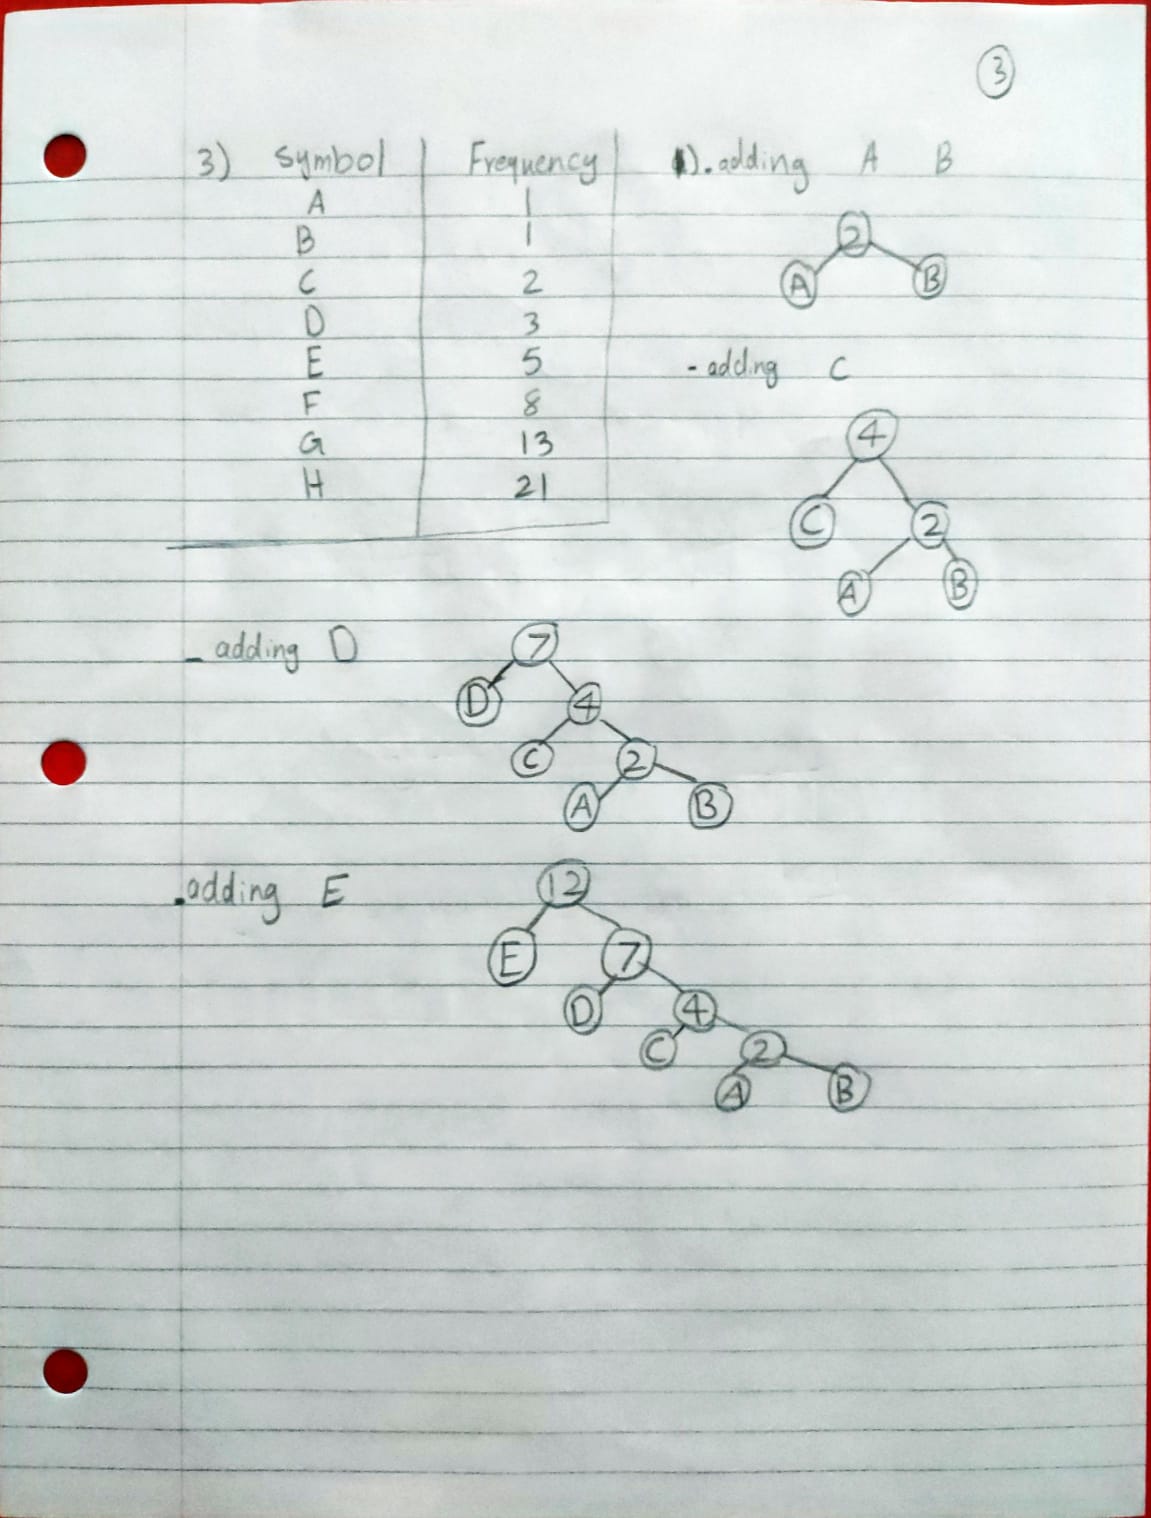 3
3) Symbol Frequency
A 1
B 1
C 2
D 3
E 5
F 8
G 13
H 21
1). adding A B
2
A B
- adding C
4
C 2
A B
- adding D
7
D 4
C 2
A B
. adding E
12
E 7
D 4
C 2
A B